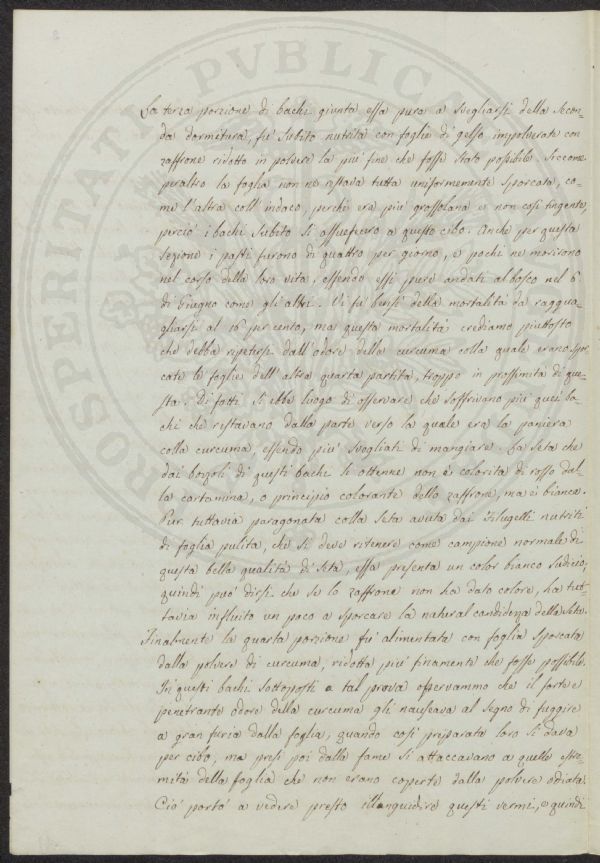 La terza porzione di bachi giunta essa pure a svegliarsi della secon-
da dormitura, fu subito nutrita con foglie di gelso impolverate con
zaffrone ridotto in polvere la più fine che fosse stato possibile. Siccome
peraltro la foglia non ne restava tutta uniformemente sporcata, co-
me l'altra coll'indaco, perchè era più grossolana e non così tingente,
perciò i bachi subito si assuefecero a questo cibo. Anche per questa
sezione i pasti furono di quattro per giorno, e pochi ne morirono
nel corso della loro vita, essendo essi pure andati al bosco nel 6
di Giugno come gli altri. Vi fu bensì della mortalità da raggua-
gliarsi al 16 per cento, ma questa mortalità crediamo piuttosto
che debba ripetersi dall'odore della curcuma colla quale erano spor-
cate le foglie dell'altra quarta partita, troppo in prossimità di que-
sta. Di fatti si ebbe luogo di osservare che soffrivano più quei ba-
chi che restavano dalla parte verso la quale era la paniera
colla curcuma, essendo più svogliati di mangiare. La seta che
dai bozzoli di questi bachi si ottenne non è colorita di rosso del-
la cartamina, o principio colorante dello zaffrone, ma è bianca.
Pur tuttavia paragonata colla seta avuta dai Filugelli nutriti
di foglia pulita, che si deve ritenere come campione normale di
questa bella qualità di seta, essa presenta un color bianco sudicio,
quindi può dirsi che se lo zaffrone non ha dato colore, ha tut-
tavia influito un poco a sporcare la natural candidezza della seta.
Finalmente la quarta porzione fu alimentata con foglia sporcata
dalla polvere di curcuma, ridotta più finamente che fosse possibile.
In questi bachi sottoposti a tal prova osservammo che il forte e
penetrante odore della curcuma gli nauseava al segno di fuggire
a gran furia dalla foglia, quando così preparata loro si dava
per cibo, ma presi poi dalla fame si attaccavano a quelle estre-
mità della foglia che non erano coperte dalla polvere odiata.
Ciò portò a vedere presto illanguidire questi vermi, e quindi
PROSPERITATI PVBLICAE